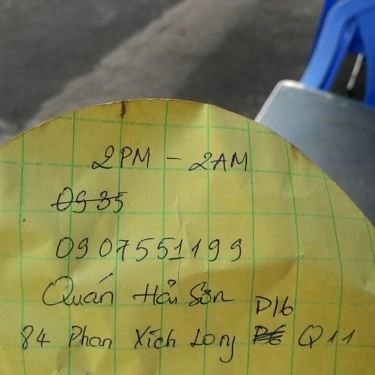 2PM - 2AM
0935
0907551199
Quán Hải Sơn
84 Phan Xích Long P16 Q11